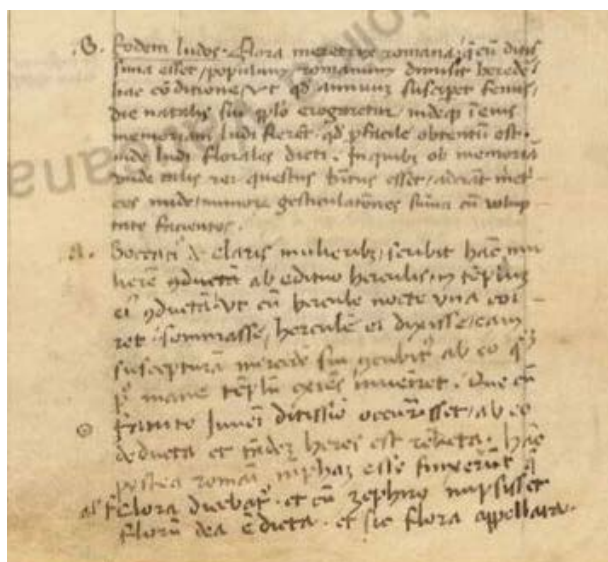 .G. Eodem ludos. Flora meretrix romana, q̃ cũ ditis
sima esset / populum romanum dimisit heredẽ
hac cõditione / vt qd annuum susciperet fenus /
die natalis sui pp̃lo erogaretur / indeq̨ ĩ eius
memoriam ludi fierẽt. qd pfacile obtentũ est.
inde ludi florales dicti. In quibz ob memoriã
vnde talis rei questus esset /
nude / mimorũ gesticulatiões sũma cũ volup
tate facientes.
A. Boccaci᷒ de claris mulieribz / scribit hãc mu
lierẽ ꝯductã ab edituo herculis, in tẽplũ
ei᷒ ꝯductã. vt cũ hercule nocte vna coi
ret. somniasse / herculẽ ei dixisse / eam
suscepturã mercedẽ sui ꝯcubit᷒ ab eo q̃
p᷒ mane tẽplũ exiẽs inueniret. Que cũ
iuueni ditissĩo occurrisset / ab eo
deducta et tãdẽ heres est relicta. hãc
postea romani nĩphaz esse finxerũt q̃
al Flora dicebat᷒. et cũ zephiro nupsisset
florũ dea ẽ dicta. et sic flora appellata.